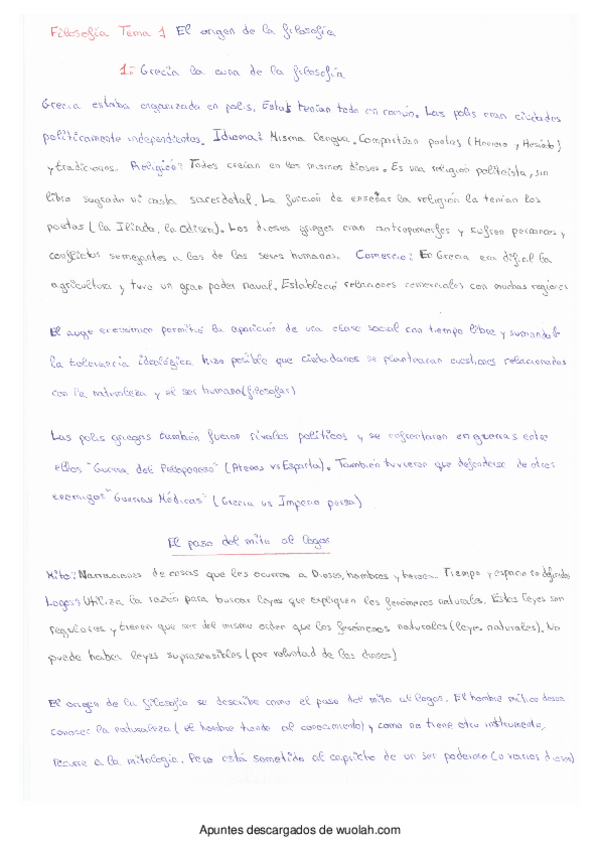 Filosofía Tema 1 El origen de la filosofía
1: Grecia la cuna de la filosofía
Grecia estaba organizada en polis. Estas tenían todo en común. Las polis eran ciudades
políticamente independientes. Idioma: Misma lengua. Compartían poetas (Homero y Hesiodo)
y tradiciones. Religión: Todos creían en los mismos dioses. Es una religión politeista, sin
libro sagrado ni casta sacerdotal. La función de enseñar la religión la tenían los
poetas (la Ilíada, la Odisea). Los dioses griegos eran antropomorfos y sufren pasiones y
conflictos semejantes a los de los seres humanos. Comercio: En Grecia era difícil la
agricultura y tuvo un gran poder naval. Estableció relaciones comerciales con muchas regiones
El auge económico permitió la aparición de una clase social con tiempo libre y sumando
la tolerancia ideológica hizo posible que ciudadanos se plantearan cuestiones relacionadas
con la naturaleza y el ser humano (filosofar)
Las polis griegas también fueron rivales políticos y se enfrentaron en guerras entre
ellos "Guerra del Peloponeso" (Atenas vs Esparta). También tuvieron que defenderse de otros
enemigos "Guerras Médicas" (Grecia vs Imperio persa)
El paso del mito al logos
Mito: Narraciones de cosas que les ocurren a Dioses, hombres y heroes. Tiempo y espacio
Logos: Utiliza la razón para buscar leyes que expliquen los fenómenos naturales. Estas leyes son
regulares y tienen que ser del mismo orden que los fenómenos naturales (leyes naturales). No
puede haber leyes suprasensibles (por voluntad de los dioses)
El origen de la filosofía se describe como el paso del mito al logos. El hombre mítico desea
conocer la naturaleza (el hombre tiende al conocimiento) y como no tiene otro instrumento,
recurre a la mitología. Pero está sometido al capricho de un ser poderoso (o varios dioses)
Apuntes descargados de wuolah.com